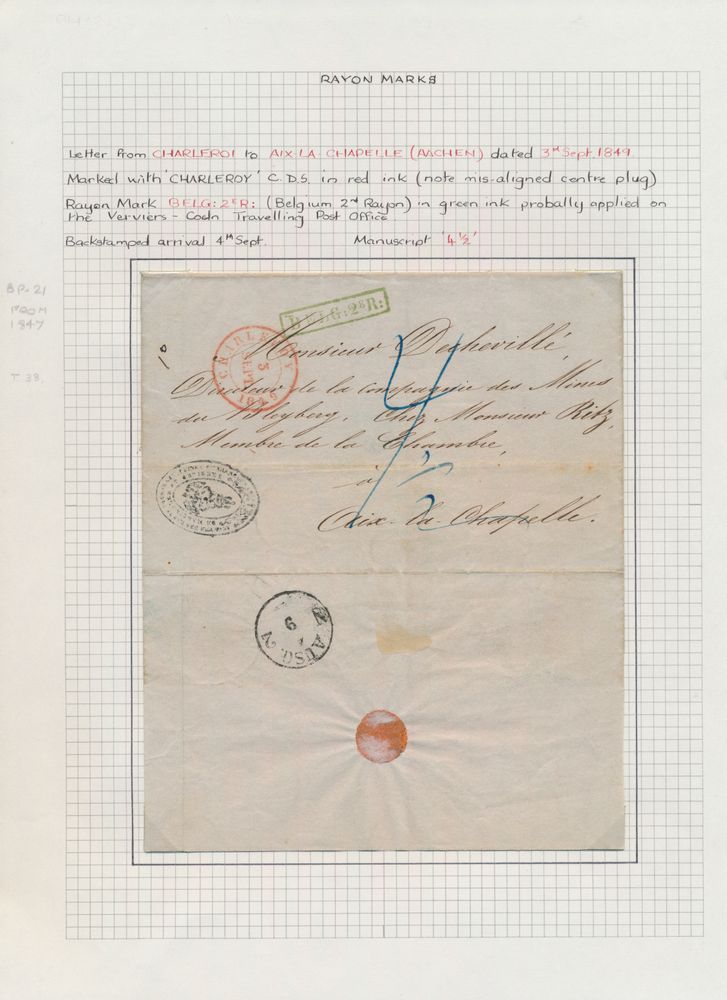 RAYON MARKS
Letter from CHARLEROI to AIX-LA-CHAPELLE (AACHEN) dated 3rd Sept. 1849.
Marked with 'CHARLEROY' C.D.S. in red ink (note mis-aligned centre plug)
Rayon Mark BELG: 2ER: (Belgium 2nd Rayon) in green ink probally applied on
the Verviers - Coln Travelling Post Office.
Backstamped arrival 4th Sept. Manuscript '4½'
BP. 21
FROM
1847
T 38.
BELG: 2ER:
CHARLEROY
3
SEPT
1849
Monsieur Decheville,
Directeur de la compagnie des Mines
du Bleyberg, Chez Monsieur Ritz,
Membre de la Chambre,
à
Aix-la-Chapelle.
4½
AUSG. 2